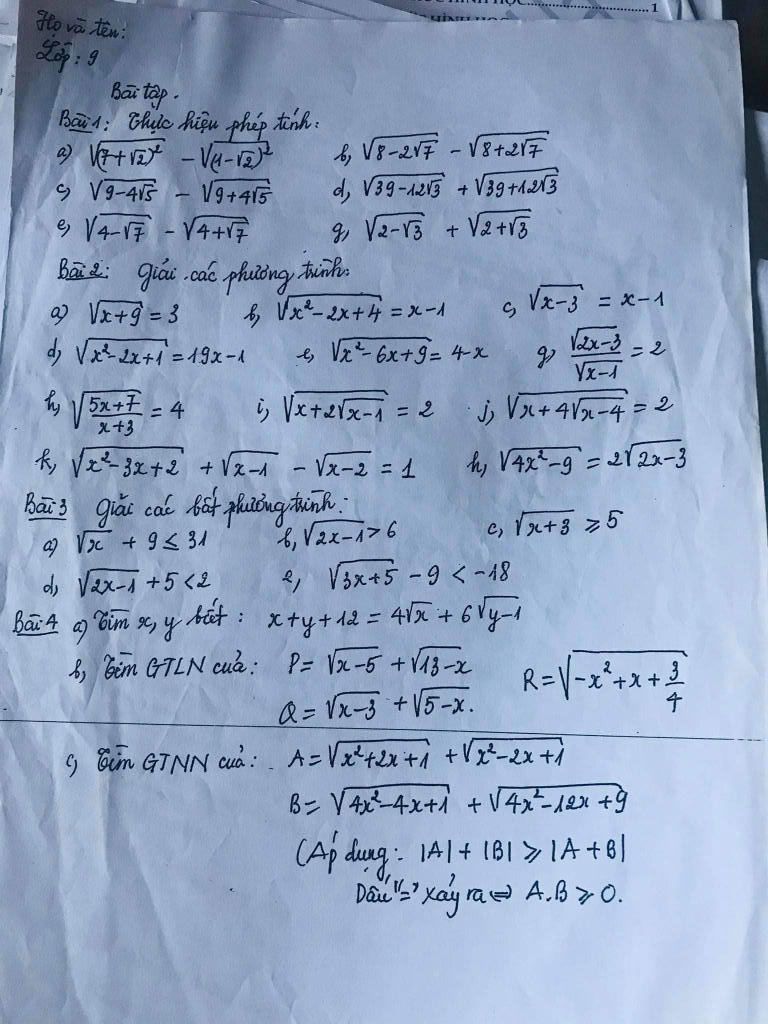 HÌNH HỌC.....................1
HÌNH HỌC
Họ và tên:
Lớp: 9
Bài tập.
Bài 1: Thực hiện phép tính:
a) √(7+√2)² - √(1-√2)² b, √8-2√7 - √8+2√7
c, √9-4√5 - √9+4√5 d, √39-12√3 + √39+12√3
e, √4-√7 - √4+√7 g, √2-√3 + √2+√3
Bài 2: Giải các phương trình:
a) √x+9 = 3 b, √x²-2x+4 = x-1 c, √x-3 = x-1
d, √x²-2x+1 = 19x-1 e, √x²-6x+9 = 4-x g, √2x-3/√x-1 = 2
h, √5x+7/x+3 = 4 i, √x+2√x-1 = 2 j, √x+4√x-4 = 2
k, √x²-3x+2 + √x-1 - √x-2 = 1 h, √4x²-9 = 2√2x-3
Bài 3 Giải các bất phương trình:
a) √x + 9 ≤ 31 b, √2x-1 > 6 c, √x+3 ≥ 5
d, √2x-1 + 5 < 2 e, √3x+5 - 9 < -18
Bài 4 a) Tìm x, y biết: x+y+12 = 4√x + 6√y-1
b, Tìm GTLN của: P = √x-5 + √13-x R = √-x²+x+3/4
Q = √x-3 + √5-x.
c, Tìm GTNN của: A = √x²+2x+1 + √x²-2x+1
B = √4x²-4x+1 + √4x²-12x+9
(Áp dụng: |A| + |B| ≥ |A+B|
Dấu "=" xảy ra ⇔ A.B ≥ 0.